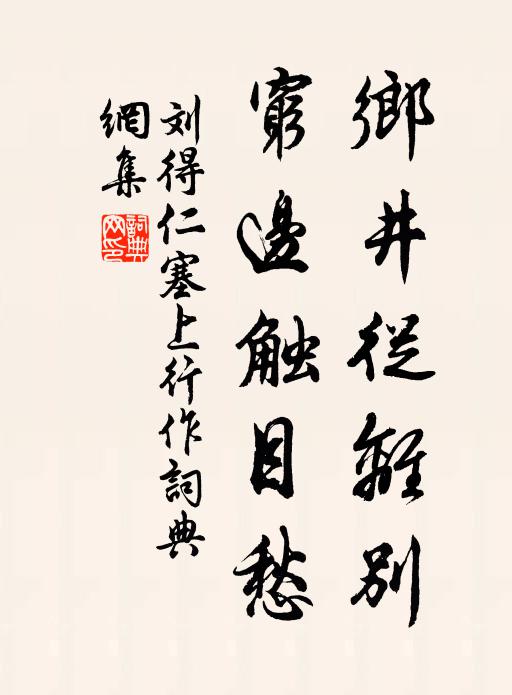 鄉井從離別
窮邊触目愁
刘得仁塞上行作詞典
網集
詞典
网印